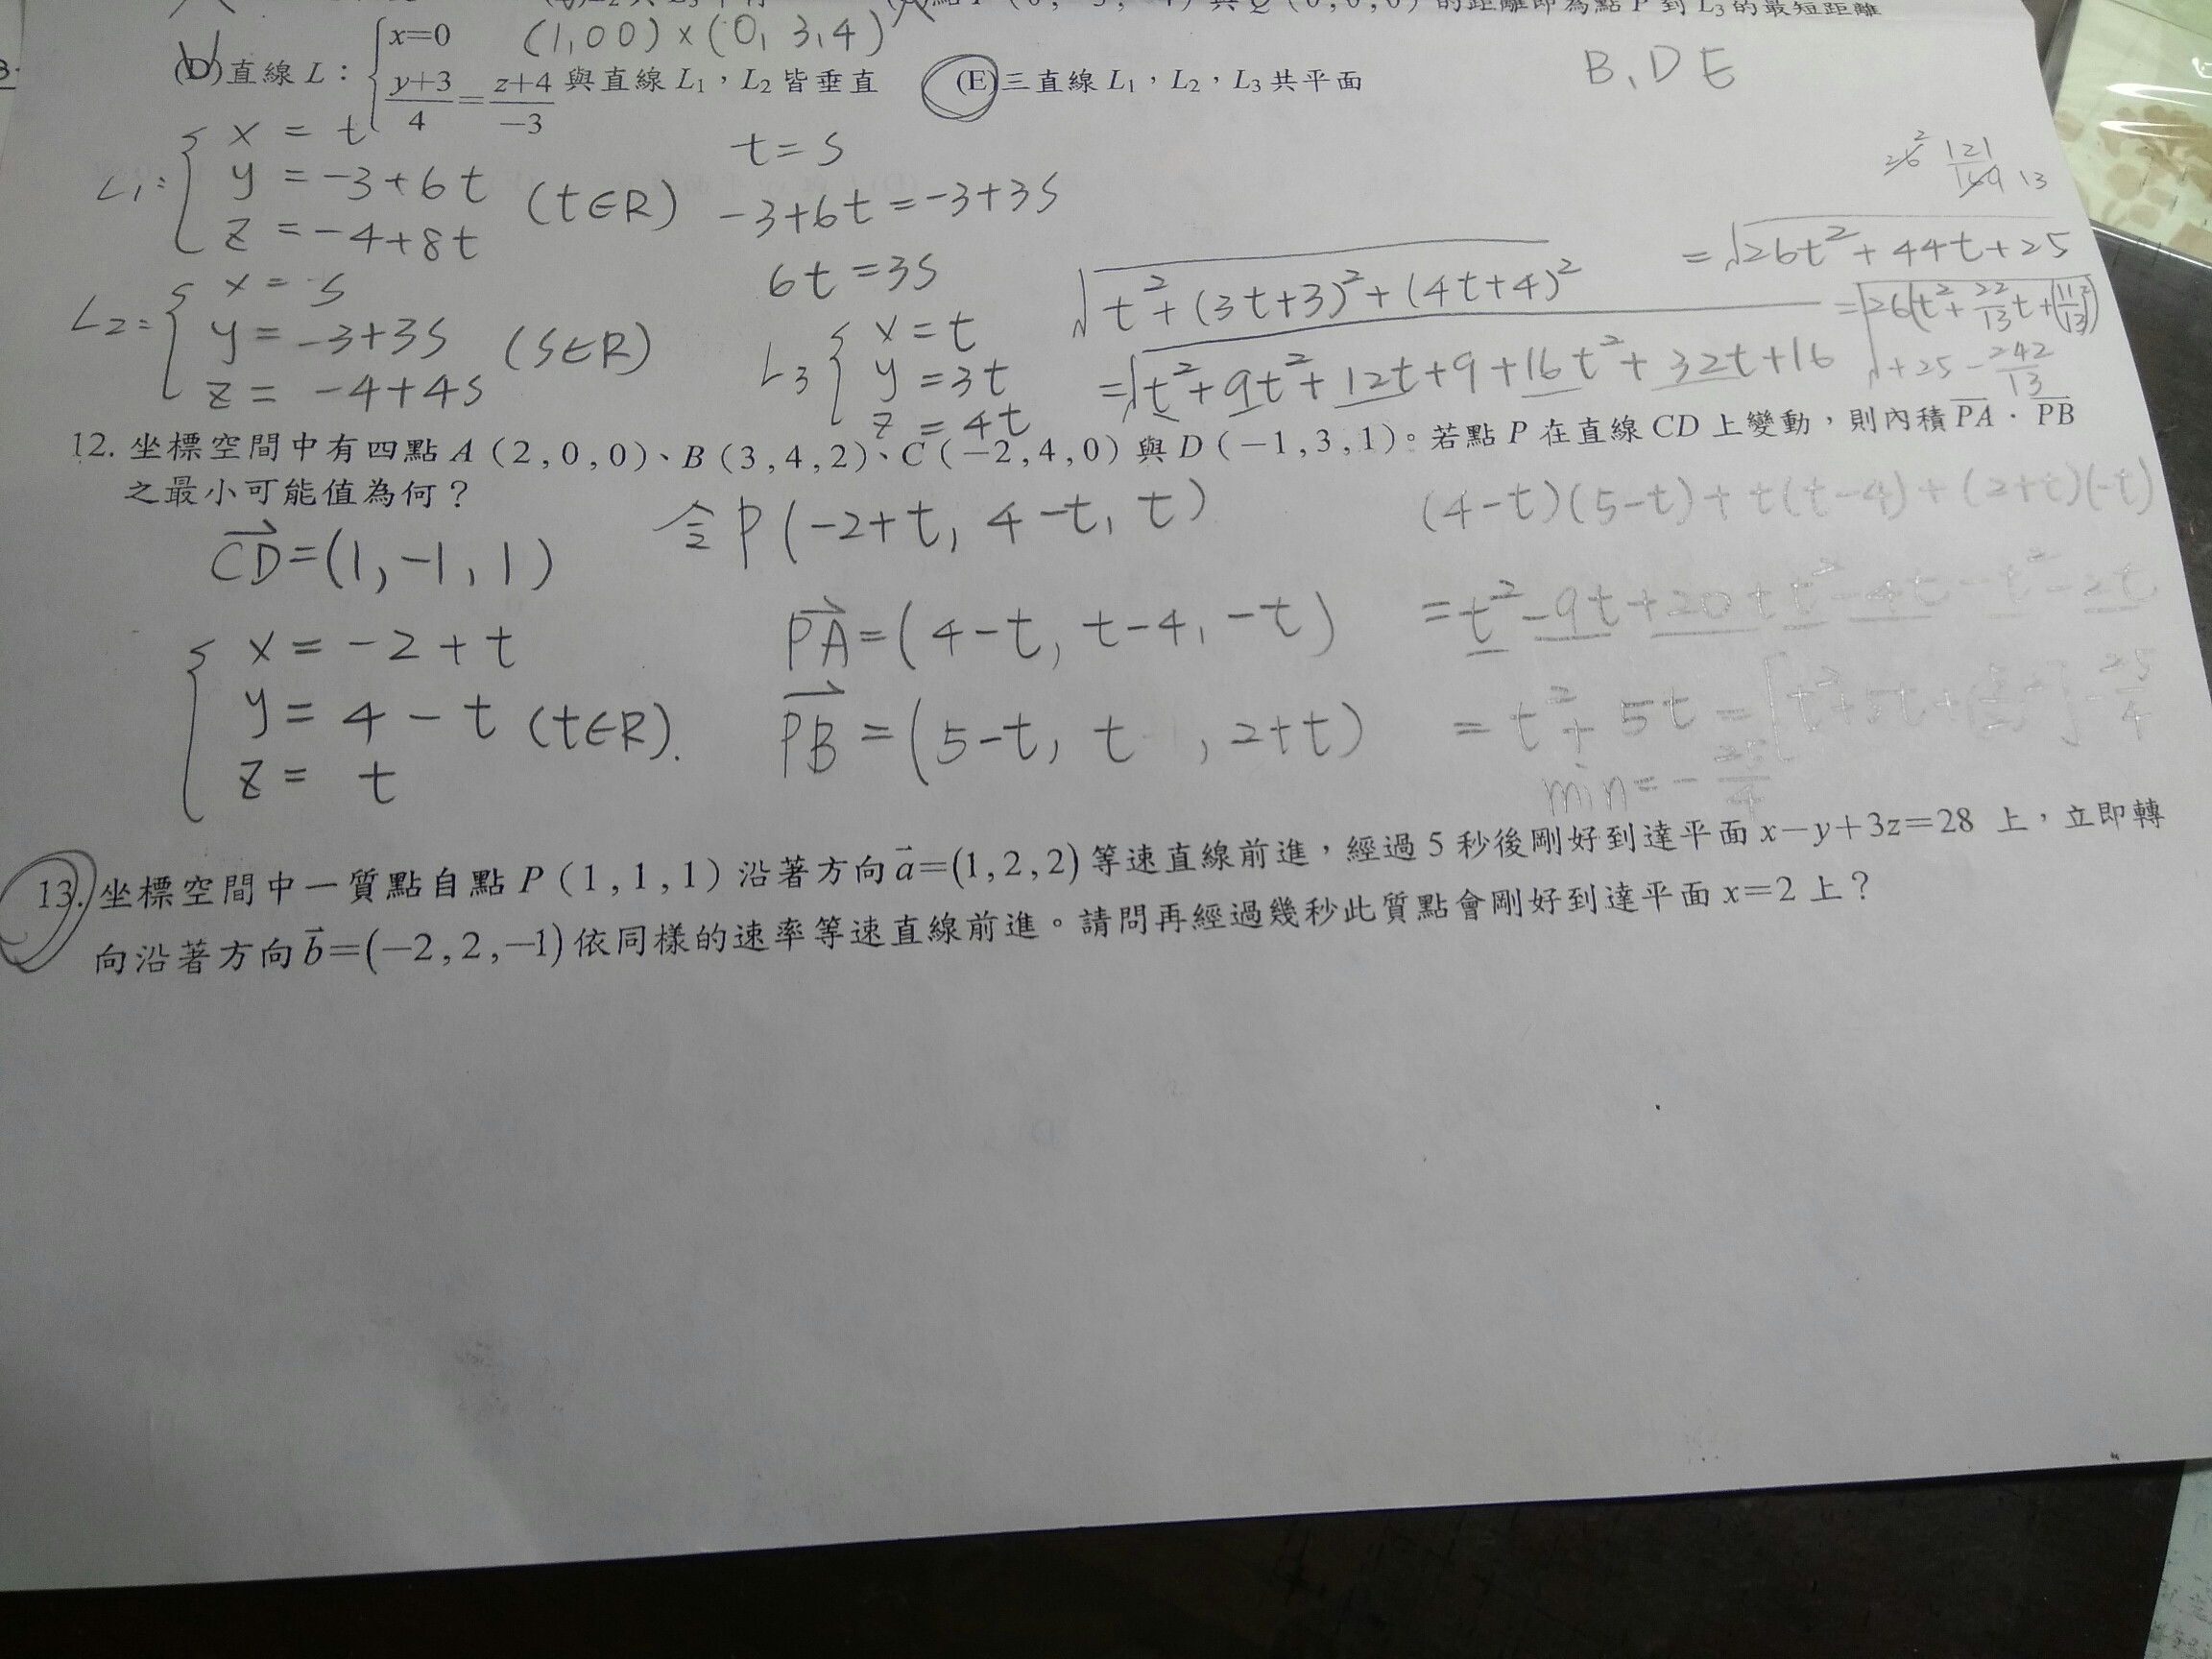 的距離即為點 P 到 L₃ 的最短距離
(D)直線 L：{x=0, (y+3)/4=(z+4)/-3 與直線 L₁，L₂ 皆垂直 (E)三直線 L₁，L₂，L₃ 共平面
(1,0 0)×(0, 3,4)
B、D E
L₁: { x = t
y = -3+6t (t∈R)
z = -4+8t
t=s
-3+6t=-3+3s
6t=3s
L₂= { x = s
y = -3+3s (s∈R)
z = -4+4s
L₃ { x=t
y=3t
z=4t
√(t²+(3t+3)²+(4t+4)²)
=√(t²+9t²+12t+9+16t²+32t+16
=√(26t²+44t+25
=√(26(t²+22/13t+(11/13)²)
+25-242/13
26 2 121/169 13
12. 坐標空間中有四點 A（2,0,0）、B（3,4,2）、C（-2,4,0）與 D（-1,3,1）。若點 P 在直線 CD 上變動，則內積 PA · PB
之最小可能值為何？
CD=(1,-1,1)
{ x = -2+t
y = 4-t (t∈R).
z = t
令P(-2+t, 4-t, t)
PA=(4-t, t-4, -t)
PB=(5-t, t , 2+t)
(4-t)(5-t)+t(t-4)+(2+t)(-t)
=t²-9t+20+t²-4t-t²-2t
=t²+5t=[t²+5t+ ]-25/4
min=-25/4
13. 坐標空間中一質點自點 P（1,1,1）沿著方向 a=(1,2,2) 等速直線前進，經過 5 秒後剛好到達平面 x-y+3z=28 上，立即轉
向沿著方向 b=(-2,2,-1) 依同樣的速率等速直線前進。請問再經過幾秒此質點會剛好到達平面 x=2 上？